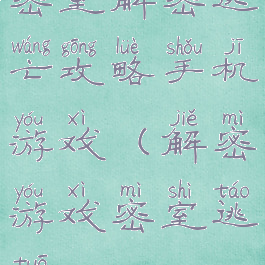 密室解密逃
wáng gōng lüè shǒu jī
亡攻略手机
yóu xì jiě mì
游戏（解密
yóu xì mì shì táo
游戏密室逃
tuō